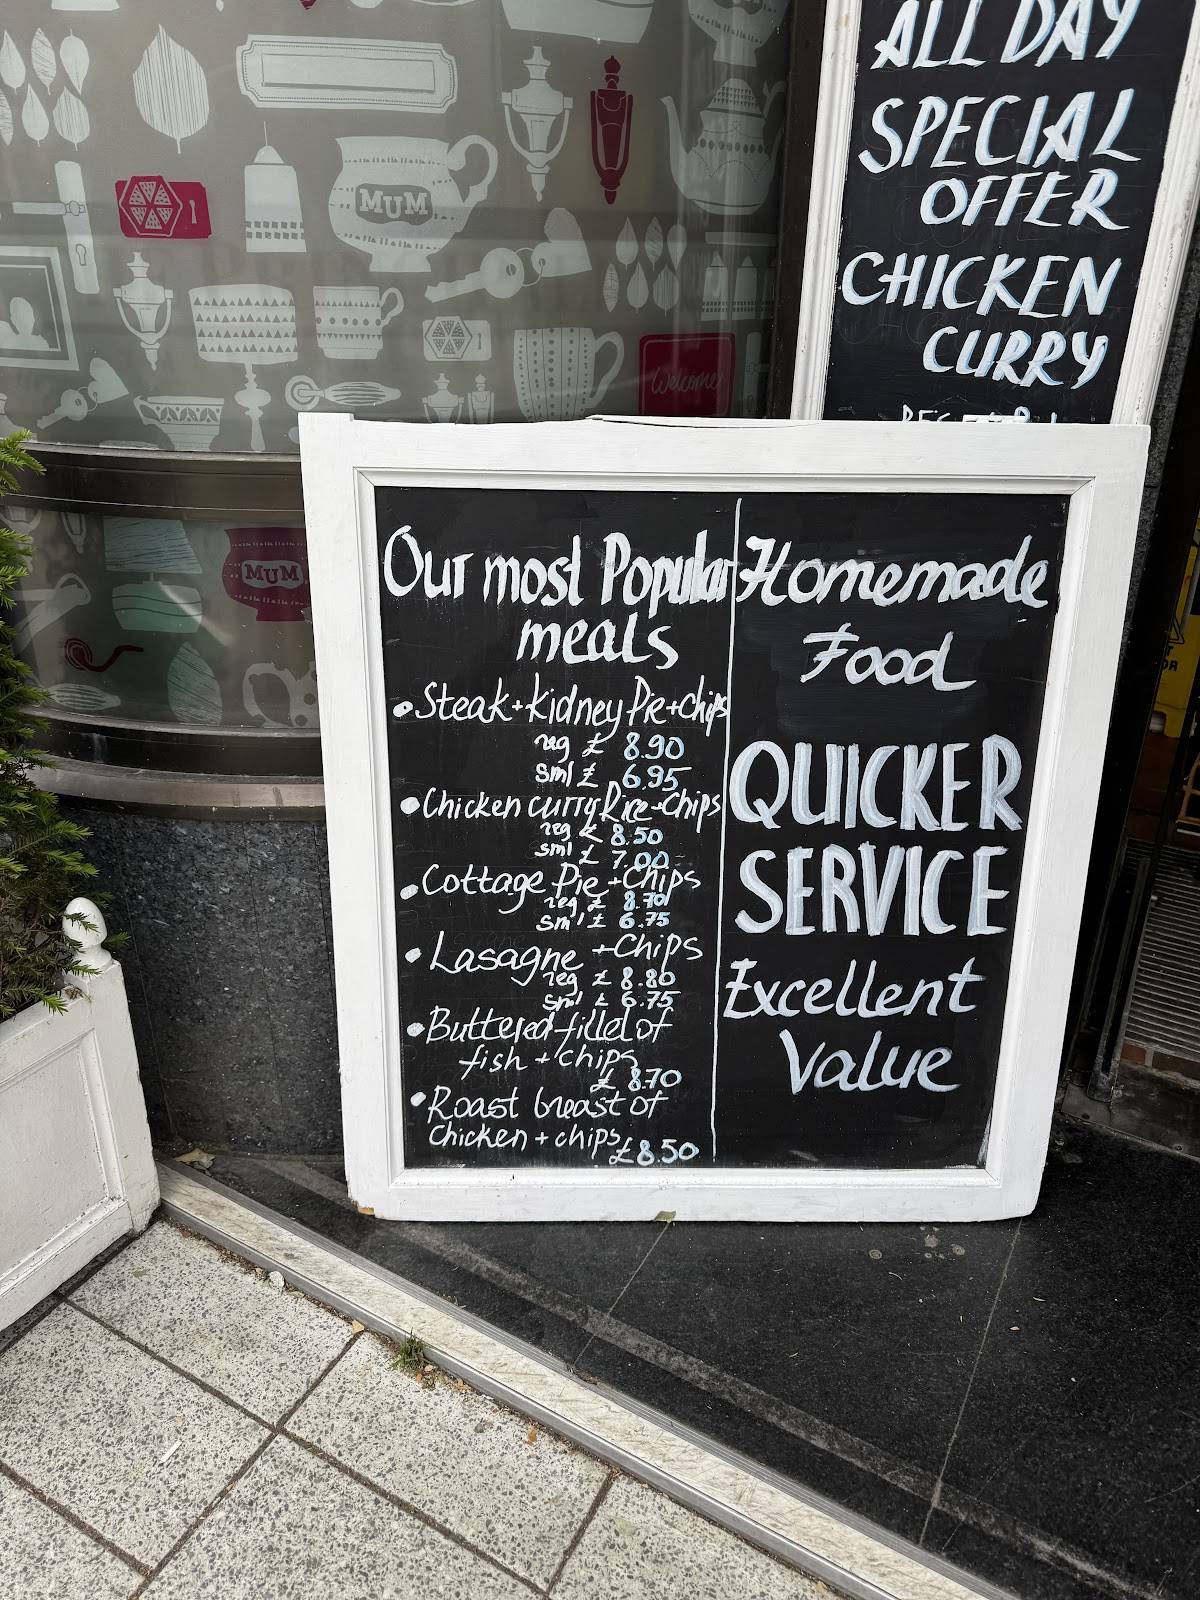 ALL DAY
SPECIAL
OFFER
CHICKEN
CURRY
MUM
1
1
Welcome
MUM
Our most Popular
meals
• Steak + kidney Pie + Chips
reg £ 8.90
sml £ 6.95
• Chicken curry Rice + Chips
reg £ 8.50
sml £ 7.00
• Cottage Pie + Chips
reg £ 8.70
sml £ 6.75
• Lasagne + Chips
reg £ 8.80
sml £ 6.75
• Buttered fillet of
fish + chips
£ 8.70
• Roast breast of
Chicken + chips £8.50
Homemade
Food
QUICKER
SERVICE
Excellent
Value